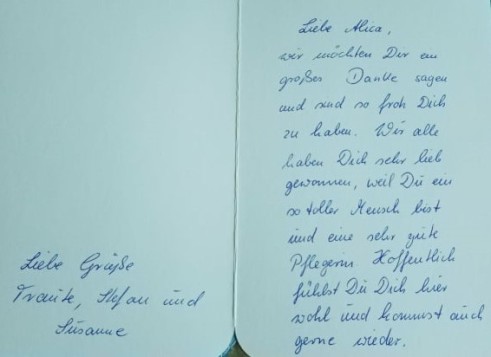 Liebe Alica,
wir möchten Dir ein
großes Danke sagen
und sind so froh Dich
zu haben. Wir alle
haben Dich sehr lieb
gewonnen, weil Du ein
so toller Mensch bist
und eine sehr gute
Pflegerin. Hoffentlich
fühlst Du Dich hier
wohl und kommst auch
gerne wieder.
Liebe Grüße
Traute, Stefan und
Susanne